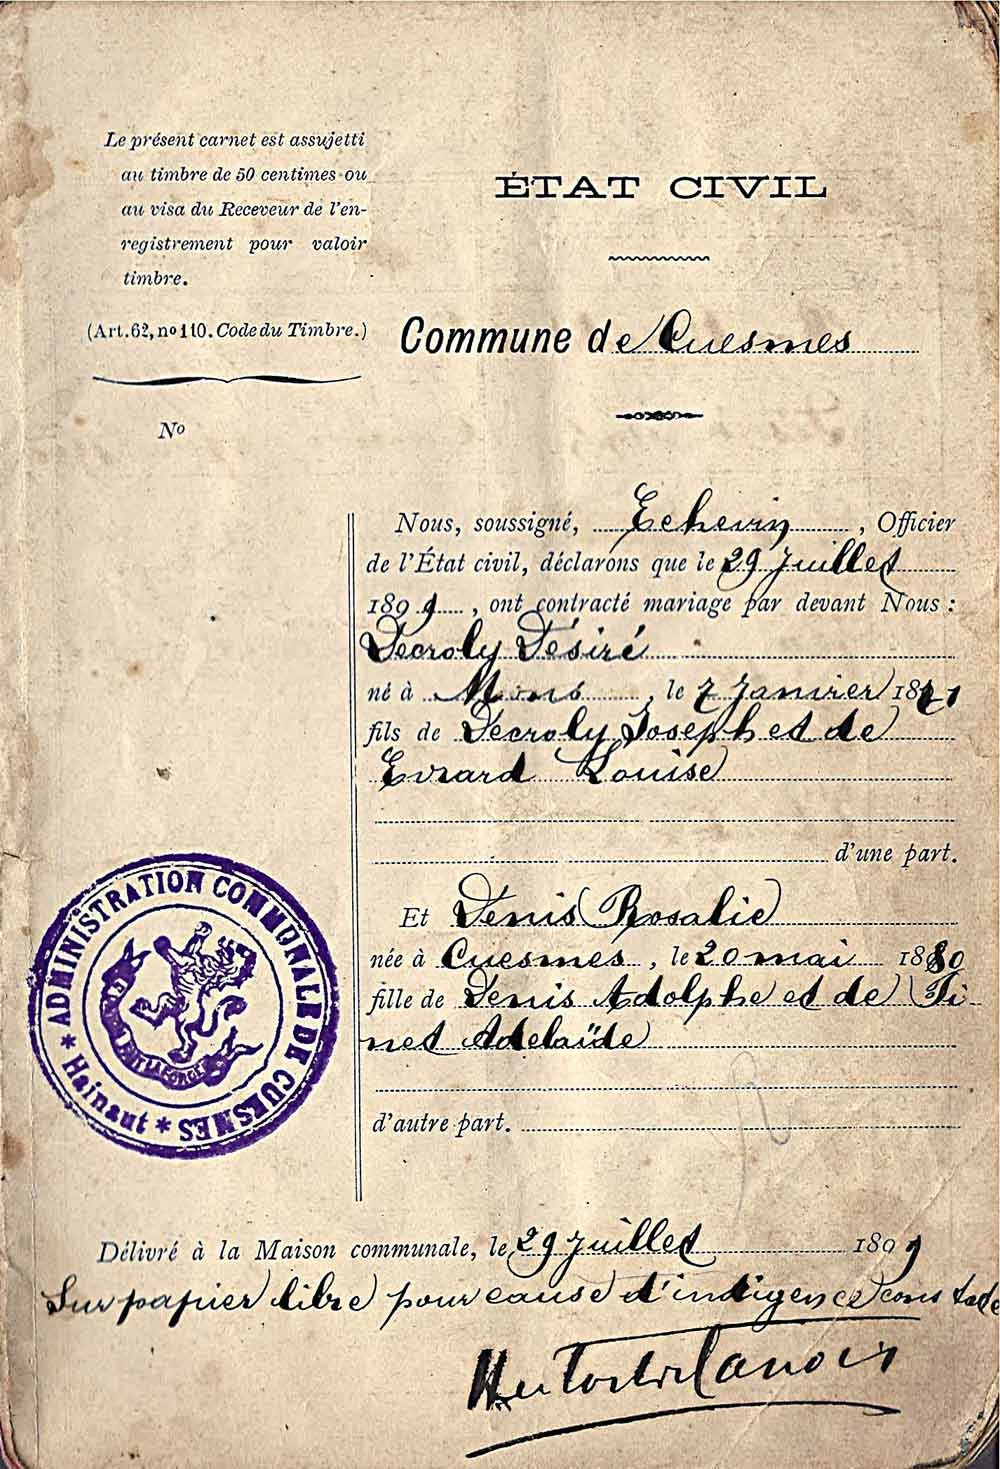 Le présent carnet est assujetti
au timbre de 50 centimes ou
au visa du Receveur de l'en-
registrement pour valoir
timbre.
(Art. 62, nº 110. Code du Timbre.)
Nº
ÉTAT CIVIL
Commune de Cuesmes
Nous, soussigné, Echevin, Officier
de l'État civil, déclarons que le 29 Juillet
1899, ont contracté mariage par devant Nous :
Décroly Désiré
né à Mons, le 7 Janvier 1871
fils de Décroly Joseph et de
Evrard Louise
d'une part.
Et Denis Rosalie
née à Cuesmes, le 20 mai 1880
fille de Denis Adolphe et de Fi-
net Adelaïde
d'autre part.
ADMINISTRATION COMMUNALE DE CUESMES
* Hainaut *
L'UNION FAIT LA FORCE
Délivré à la Maison communale, le 29 Juillet 1899
Sur papier libre pour cause d'indigence constatée